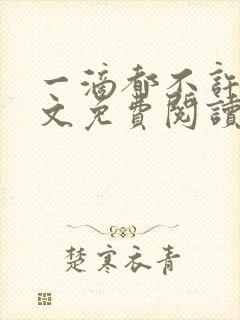 一滴都不許
文免費閱讀
楚寒衣青